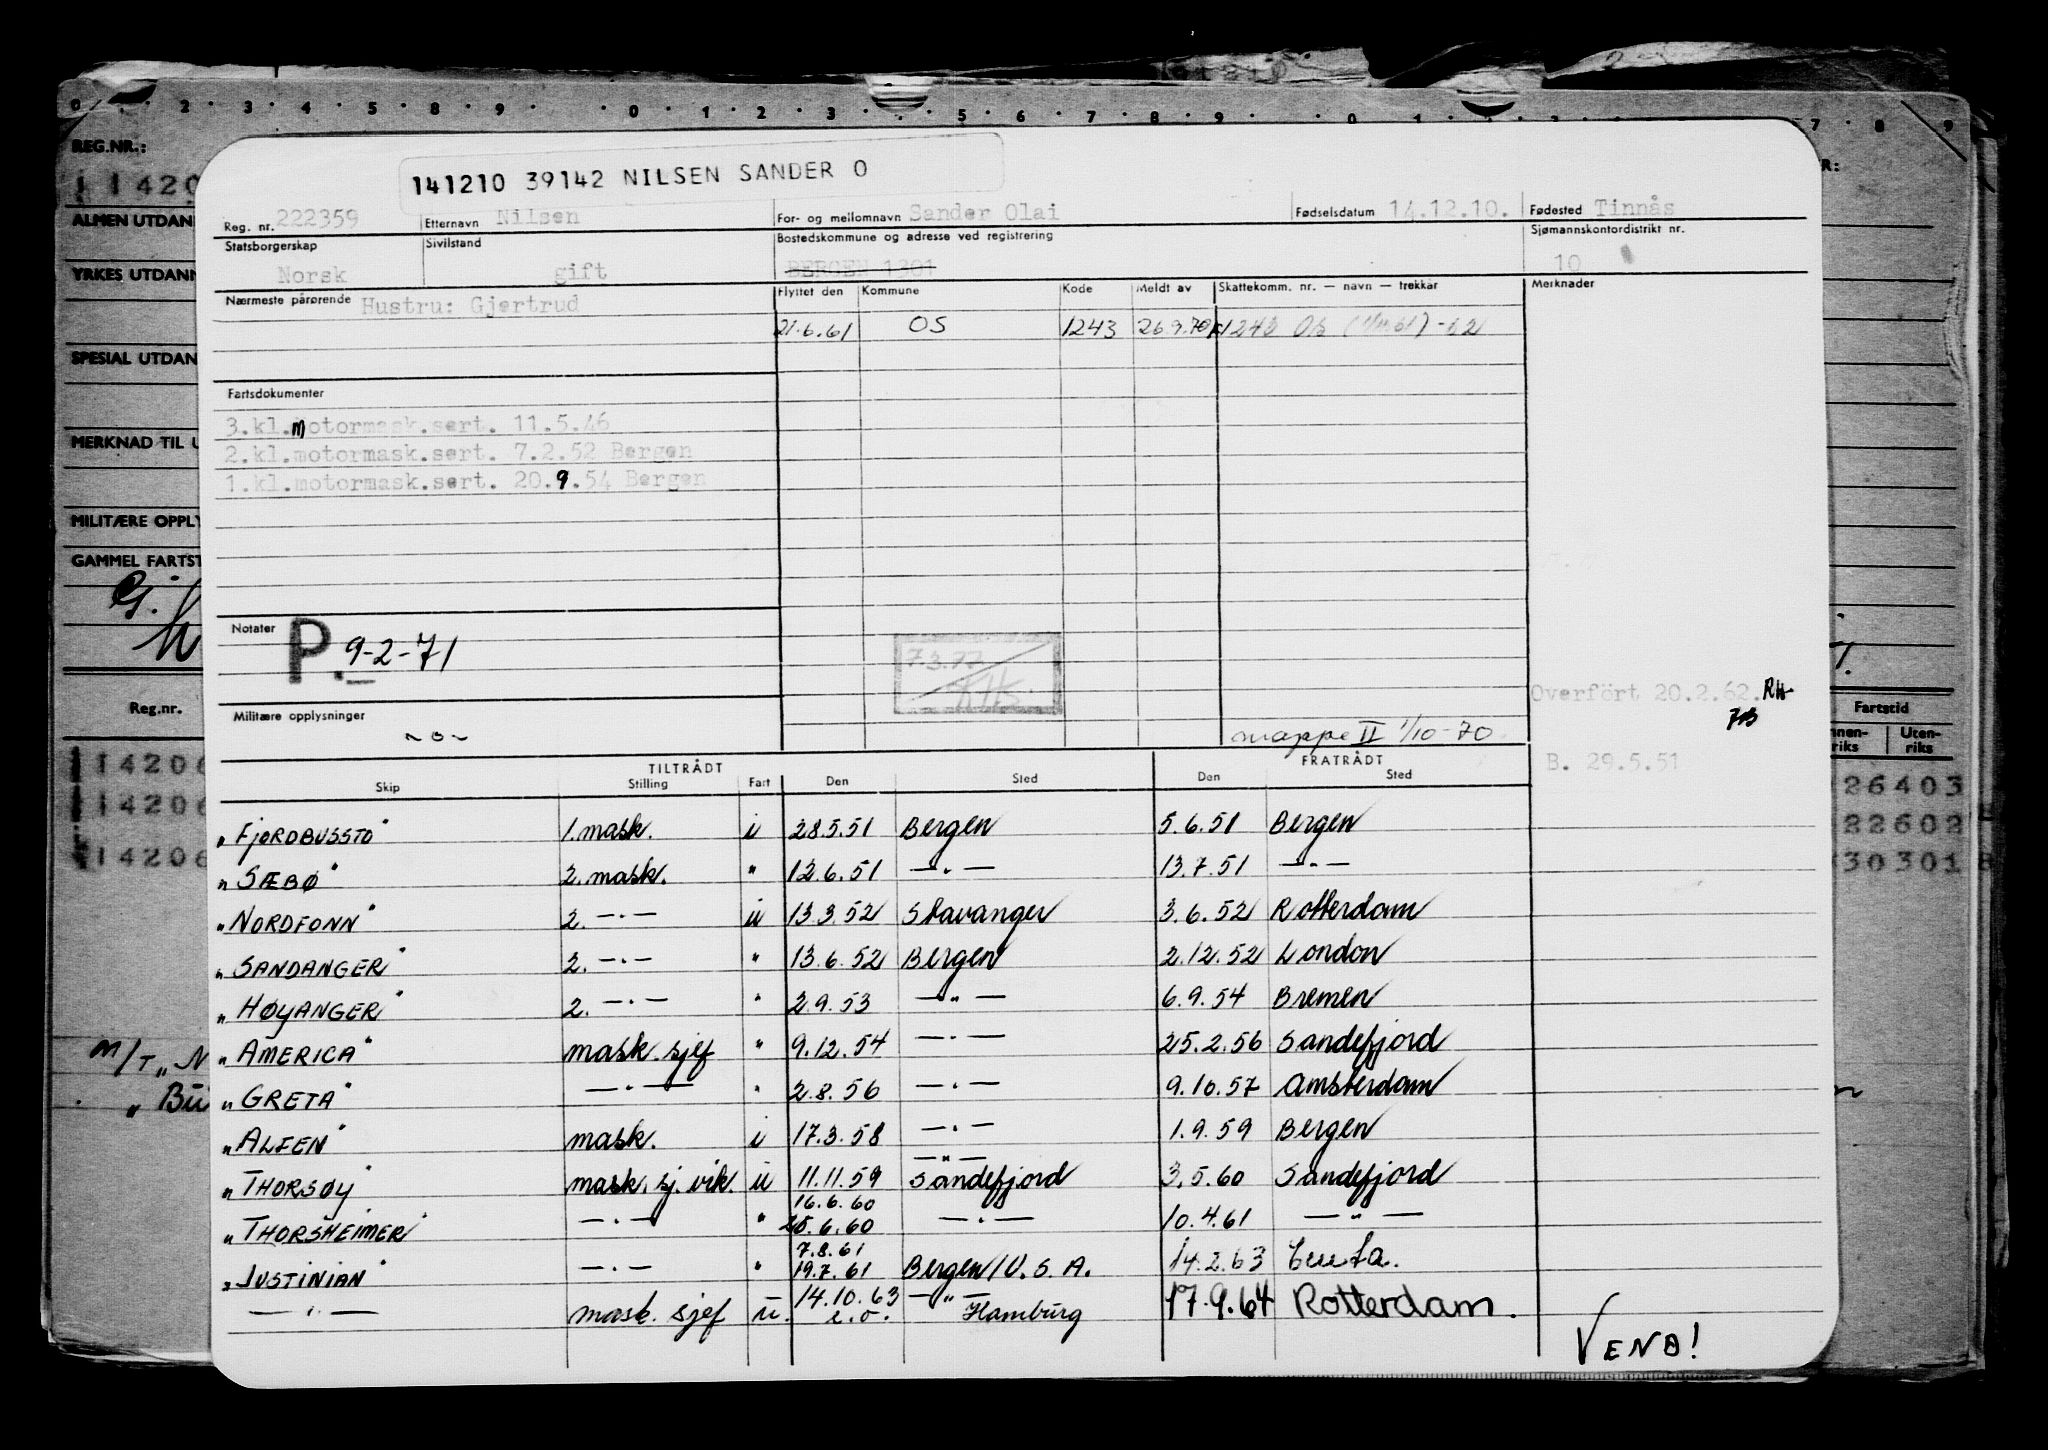 0 . 2 . 3 . 4 . 5 . 8 . 9 . . 0 . 1 . 2 . 3 . . 5 . 6 . 7 . 8 . 9 . . 0 . 1 . 7 . 8 . 9
REG.NR.:
1 1420
141210 39142 NILSEN SANDER O
ALMEN UTDAN
Reg. nr. 222359 Etternavn Nilsen For- og mellomnavn Sander Olai Fødselsdatum 14.12.10. Fødested Tinnås
Statsborgerskap Sivilstand Bostedskommune og adresse ved registrering Sjømannskontordistrikt nr.
YRKES UTDANN
Norsk gift BERGEN 1301 10
Nærmeste pårørende Hustru: Gjertrud Flyttet den Kommune Kode Meldt av Skattekomm. nr. — navn — trekkår Merknader
21.6.61 OS 1243 26.9.70 1243 Os -62
SPESIAL UTDAN
Fartsdokumenter
3.kl.Motormask.sert. 11.5.46
MERKNAD TIL U
2.kl.motormask.sert. 7.2.52 Bergen
1.kl.motormask.sert. 20.9.54 Bergen
MILITÆRE OPPLY
GAMMEL FARTST
Notater P. 9-2-71
7.3.72
Overført 20.2.62. RH
Militære opplysninger
-0-
mappe II 1/10-70
Reg.nr. Fartstid
nnen-riks Uten-riks
TILTRÅDT FRATRÅDT B. 29.5.51
Skip Stilling Fart Den Sted Den Sted
14206 26403
14206 22602
14206 30301
"FJORDBUSSTO" 1. mask. i 28.5.51 Bergen 5.6.51 Bergen
"SÆBØ" 2. mask. " 12.6.51 —"— 13.7.51 —"—
"NORDFONN" 2. —"— u 13.3.52 Stavanger 3.6.52 Rotterdam
"SANDANGER" 2. —"— " 13.6.52 Bergen 2.12.52 London
"HØYANGER" 2. —"— " 2.9.53 —"— 6.9.54 Bremen
"AMERICA" mask. sjef " 9.12.54 —"— 25.2.56 Sandefjord
M/T "N
"GRETA" —"— " 2.8.56 —"— 9.10.57 Amsterdam
" Bu
"ALFEN" mask. i 17.3.58 —"— 1.9.59 Bergen
—"—
"THORSØY" mask. sj. vik. u 11.11.59 Sandefjord 3.5.60 Sandefjord
16.6.60
"THORSHEIMER" —"— " 25.6.60 —"— 10.4.61 —"—
7.8.61
"JUSTINIAN" —"— " 19.7.61 Bergen/U.S.A. 14.2.63 Ceuta.
14.10.63 —"—
—"— mask. sjef u. e.o. Hamburg 17.9.64 Rotterdam.
VEND!